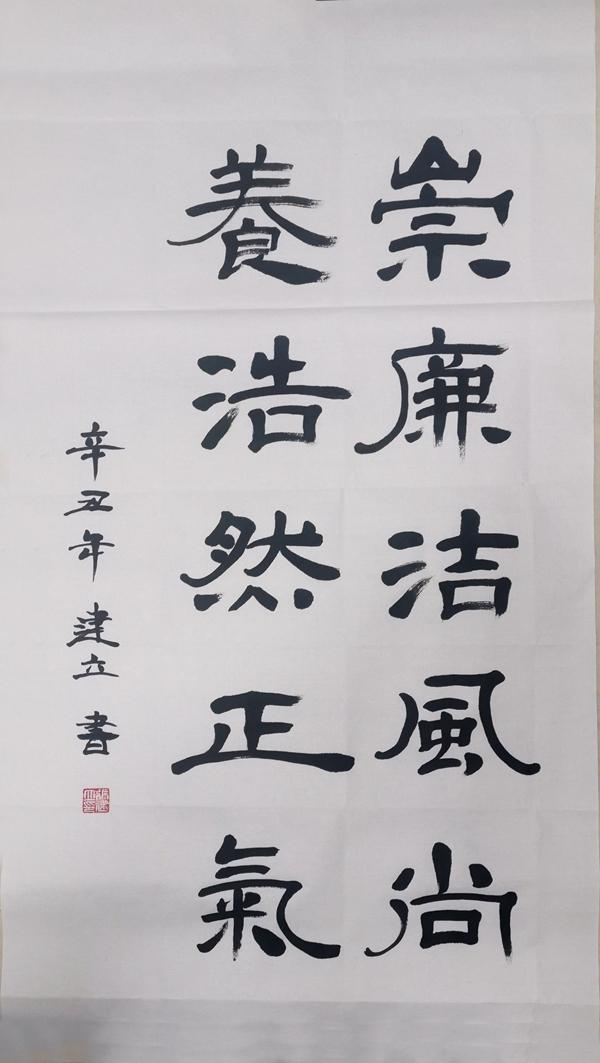 崇廉洁風尚
養浩然正氣
辛丑年建立書